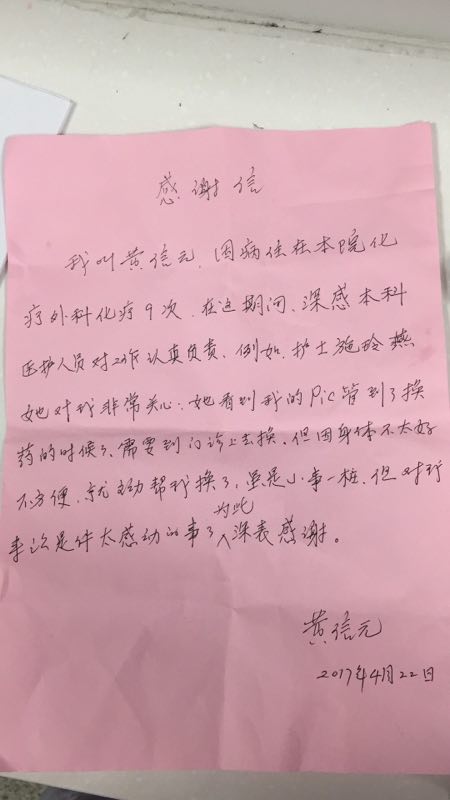 感谢信
我叫黄信元，因病住在本院化
疗外科化疗9次，在这期间，深感本科
医护人员对工作认真负责，例如，护士施玲燕
她对我非常关心：她看到我的Pic管到了换
药的时候了，需要到门诊上去换，但因身体不太好
不方便，就主动帮我换了，虽是小事一桩，但对我
来说是件太感动的事了，为此深表感谢。
黄信元
2017年4月22日